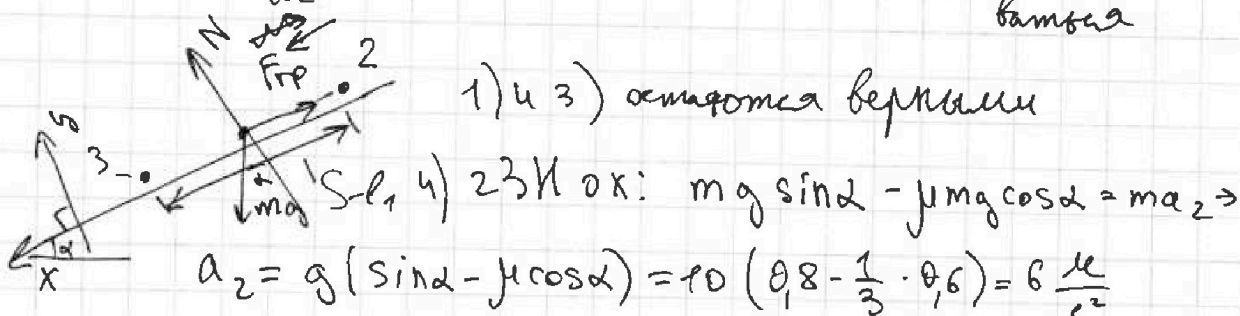 ваться
N
Fтр
2
1) и 3) остаются верными
y
3
S-l₁
mg
α
4) 2ЗН ox: mg sinα - μmg cosα = ma₂ ⇒
x
α
a₂ = g(sinα - μcosα) = 10(0,8 - 1/3 · 0,6) = 6 м/с²